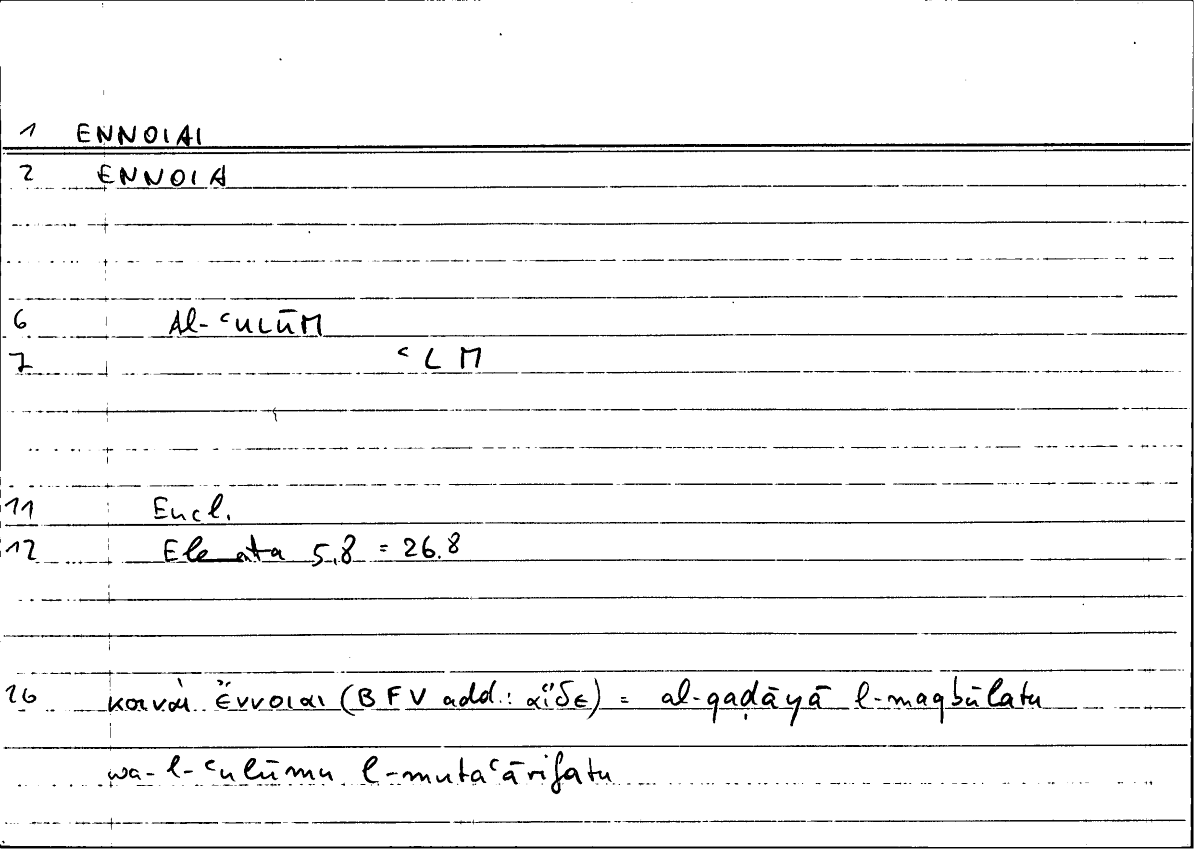 1 ENNOIAI
2 ENNOIA
6 Al-ʿULŪM
7 ʿLM
11 Eucl.
12 Elemata 5.8 = 26.8
26 κοιναὶ ἔννοιαι (BFV add.: αἵδε) = al-qaḍāyā l-maqbūlatu
wa-l-ʿulūmu l-mutaʿārifatu